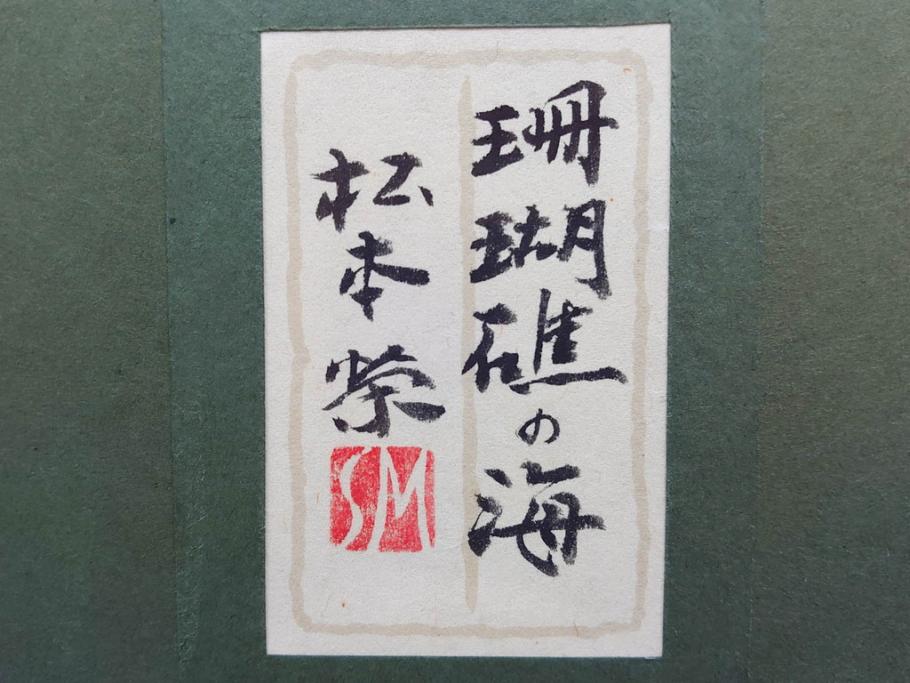 珊瑚礁の海
松本榮
SM